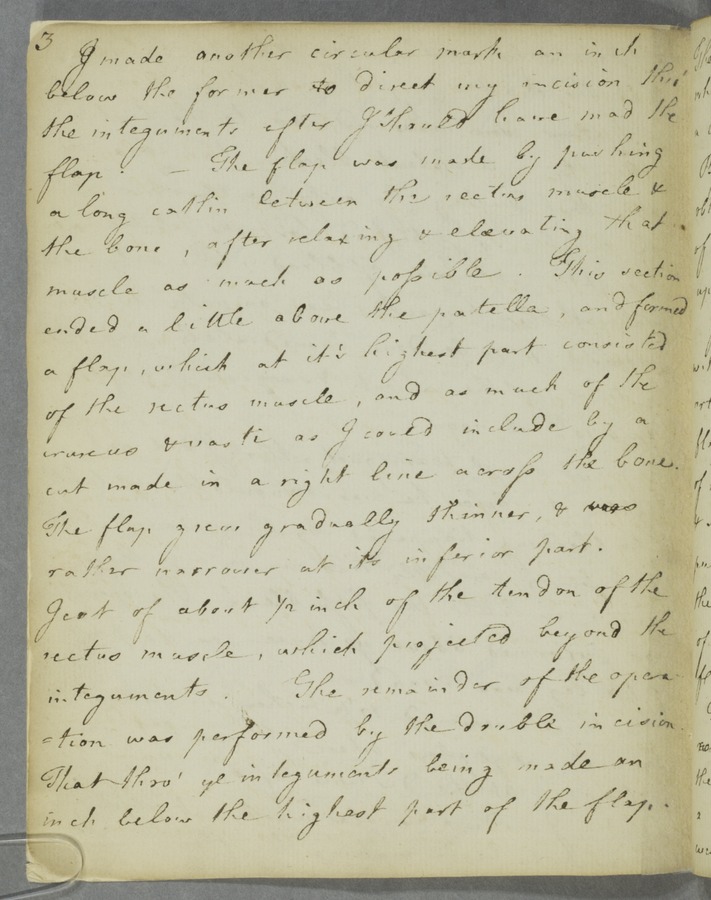 3
I made another circular mark an inch
below the former to direct my incision thro'
the integuments after I should have mad the
flap. — The flap was made by pushing
a long catlin between the rectus muscle &
the bone, after relaxing & elevating that
muscle as much as possible. This section
ended a little above the patella, and formed
a flap, which at it's highest part consisted
of the rectus muscle, and as much of the
crureus & vasti as I could include by a
cut made in a right line across the bone.
The flap grew gradually thinner, & was
rather narrower at its inferior part.
I cut of about 1/2 inch of the tendon of the
rectus muscle, which projected beyond the
integuments. The remainder of the opera
=tion was performed by the double incision.
That thro' ye integuments being made an
inch below the highest part of the flap.